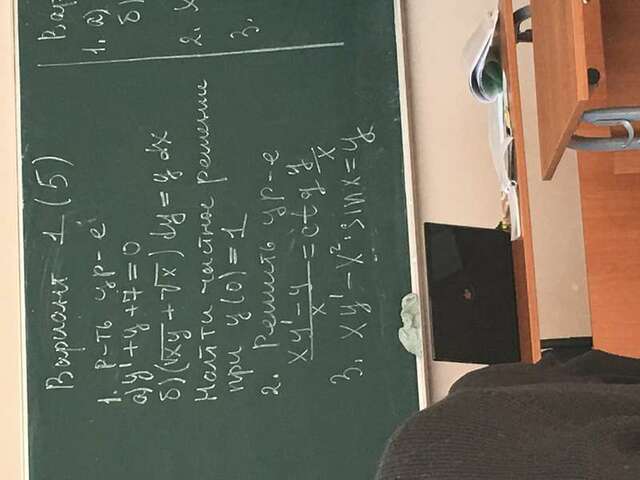 Вариант 1 (5)
1. Р-ть ур-е
а) y' + y + 7 = 0
б) (√xy + √x) dy = y dx
Найти частное решение
при y(0) = 1
2. Решить ур-е
(xy' - y)/x = ctg y/x
3. xy' - x²·sinx = y
Вар
1. а)
б)
2.
3.